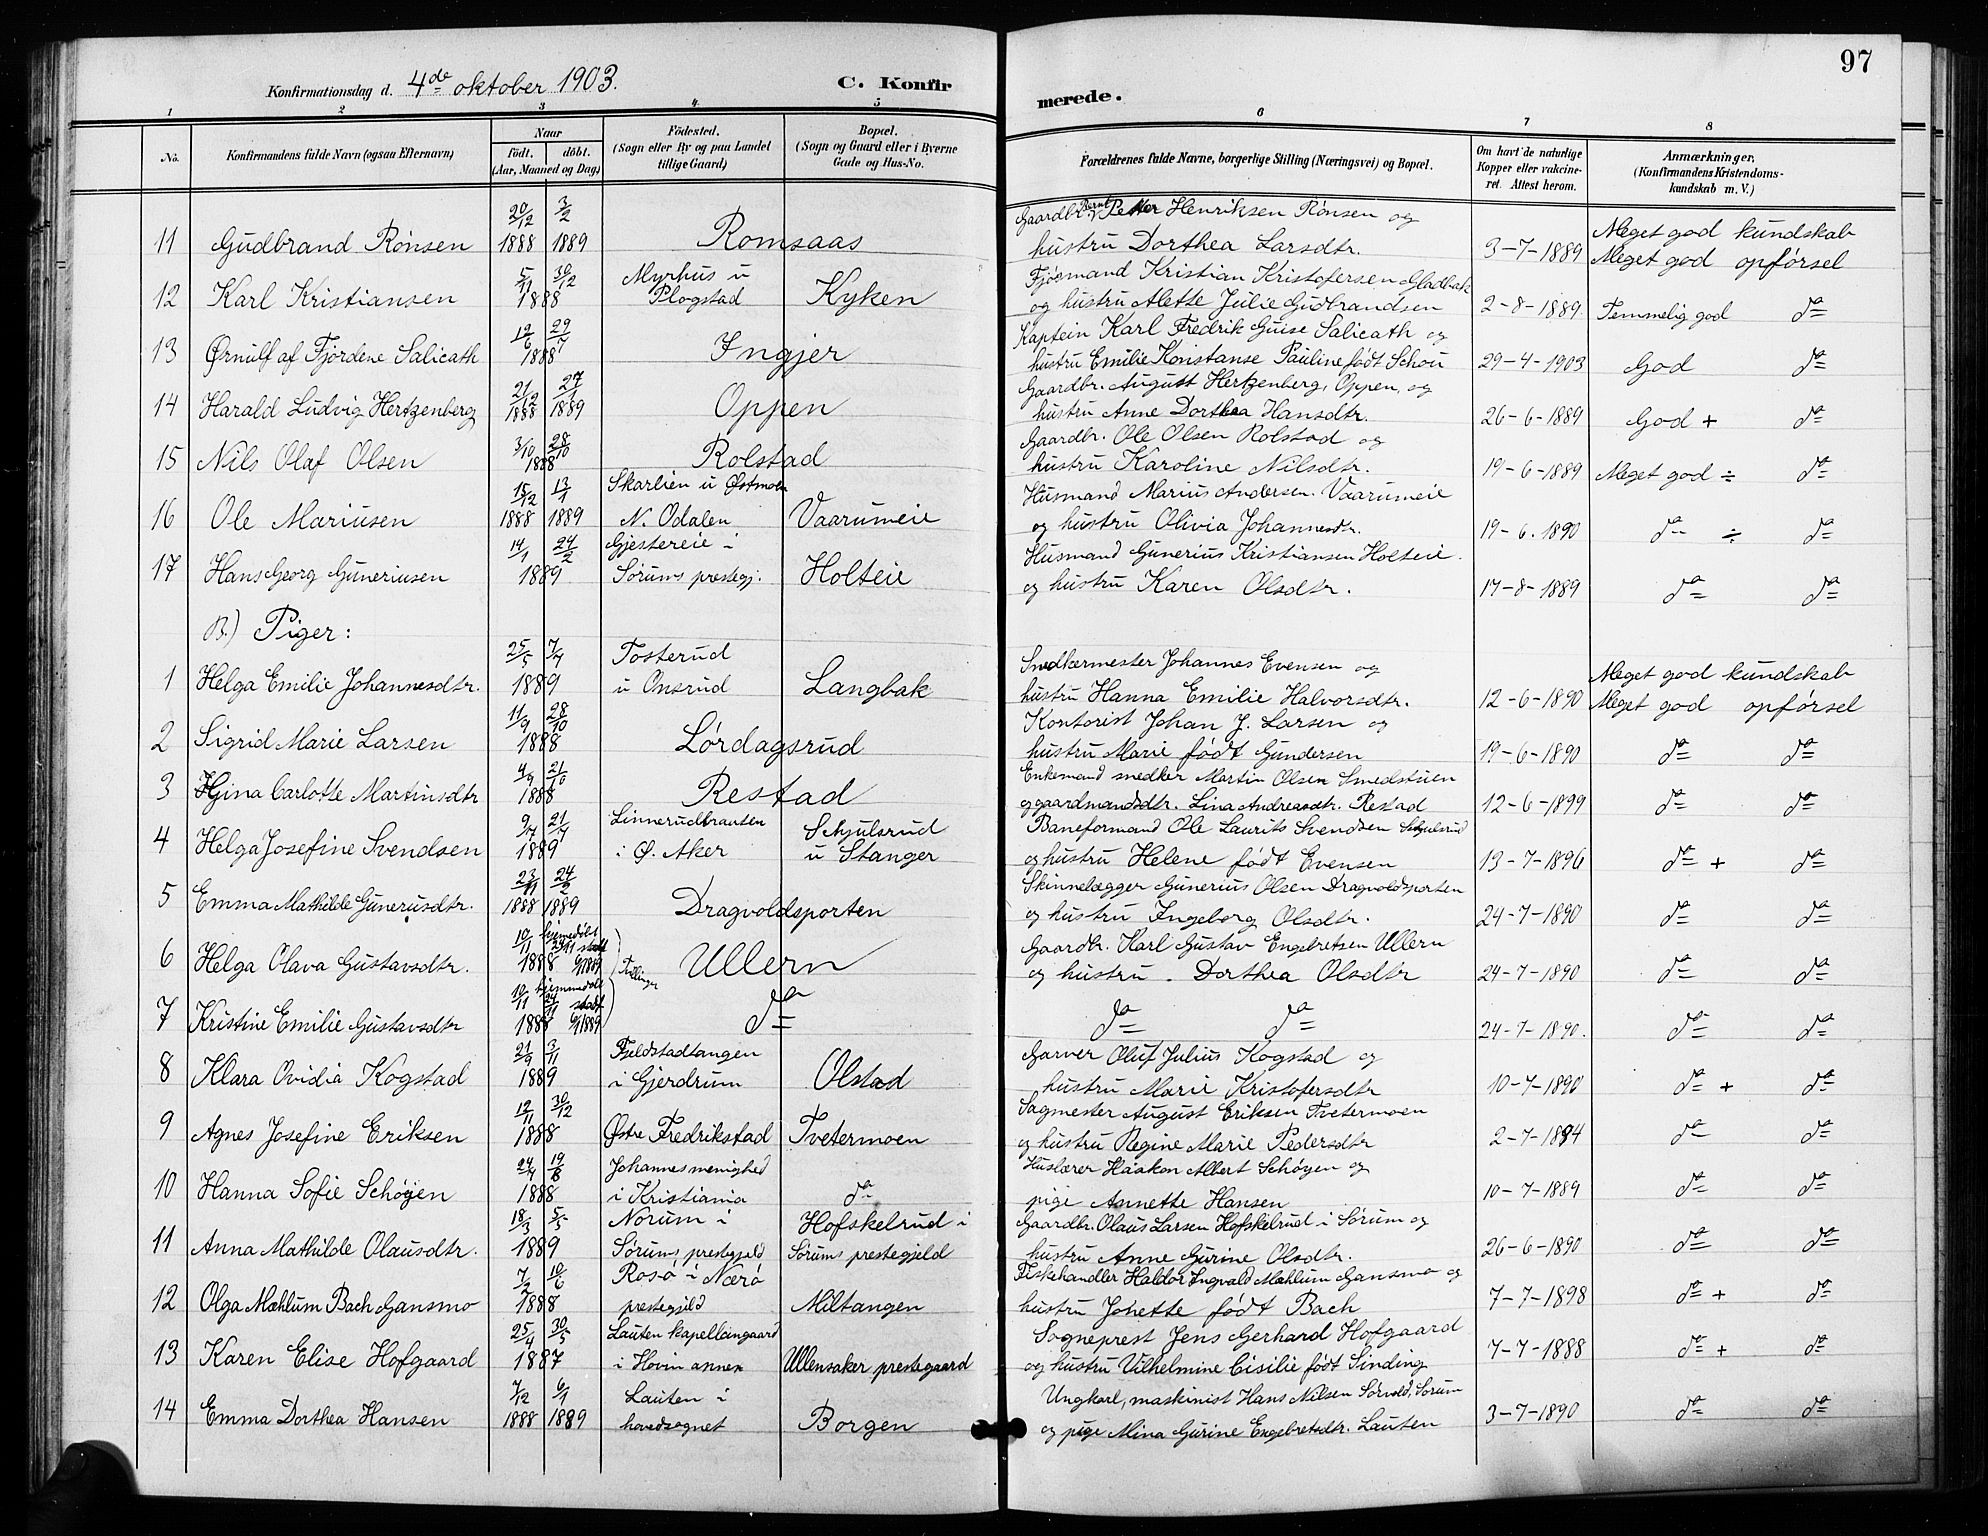 97
Konfirmationsdag d. 4de oktober 1903.
C. Konfirmerede.
1 2 3 4. 5 6 7 8
No.
Konfirmandens fulde Navn (ogsaa Efternavn)
Naar
Födt. döbt.
(Aar, Maaned og Dag)
Födested.
(Sogn eller By og paa Landet tillige Gaard)
Bopæl.
(Sogn og Gaard eller i Byerne Gade og Hus-No.
Forældrenes fulde Navne, borgerlige Stilling (Næringsvei) og Bopæl.
Om havt de naturlige Kopper eller vakcineret. Attest herom.
Anmærkninger.
(Konfirmandens Kristendomskundskab m. V.)
11 Gudbrand Rönsen 20/12 1888 3/2 1889 Romsaas Gaardbr. Bernt Petter Henriksen Rönsen og hustru Dorthea Larsdtr. 3-7-1889 Meget god kundskab Meget god opførsel
12 Karl Kristiansen 5/11 30/12 1888 Myrhus u Plogstad Kyken Fjösmand Kristian Kristofersen Gladbak og hustru Alette Julie Gudbrandsen 2-8-1889. Temmelig god da
13 Ørnulf af Fjordene Salicath 12/6 29/7 1888 Ingjer Kaptein Karl Fredrik Guise Salicath og hustru Emilie Konstanse Pauline født Schou 29-4-1903 God da
14 Harald Ludvig Hertzenberg 21/12 1888 27/1 1889 Oppen Gaardbr. August Hertzenberg, Oppen, og hustru Anne Dorthea Hansdtr. 26-6-1889 God + da
15 Nils Olaf Olsen 3/10 28/10 1888 Rolstad Gaardbr. Ole Olsen Rolstad og hustru Karoline Nilsdtr. 19-6-1889 Meget god ÷ da
16 Ole Mariusen 15/12 1888 13/1 1889 Skarlien u Østmoen N. Odalen Vaarumeie Husmand Marius Andersen. Vaarumeie og hustru Olivia Johannesdtr. 19-6.1890 da ÷ da
17 Hans Georg Guneriusen 14/1 24/2 1889 Gjestereie i Sørums prestegj. Holteie Husmand Gunerius Kristiansen Holteie. og hustru Karen Olsdtr. 17-8-1889 da da
B.) Piger:
1 Helga Emilie Johannesdtr. 25/5 7/7 1889 Tosterud u Onsrud Langbak Snedkermester Johannes Evensen og hustru Hanna Emilie Halvorsdtr. 12-6-1890 Meget god kundskab Meget god opførsel
2 Sigrid Marie Larsen 11/9 28/10 1888 Lørdagsrud Kontorist Johan J. Larsen og hustru Marie født Gundersen 19-6-1890 da da
3 Gina Carlotte Martinsdtr 4/9 21/10 1888 Restad Enkemand snedker Martin Olsen Smedstuen og gaardmandsdtr. Lina Andreasdtr. Restad 12-6-1899 da da
4 Helga Josefine Svendsen 9/4 21/7 1889 Linnerudbraaten i Ø. Aker Schjulsrud u Stanger Baneformand Ole Laurits Svendsen Schjulsrud og hustru Helene født Evensen 13-7-1896 da + da
5 Emma Mathilde Guneriusdtr. 23/11 1888 24/2 1889 Dragvoldsporten Skinnelægger Gunerius Olsen Dragvoldsporten og hustru Ingeborg Olsdtr. 24-7-1890 da da
6 Helga Olava Gustavsdtr. 10/11 1888 hjemedöbt 24/11 stadf. 6/1 1889 Tvillinger Ullern Gaardbr. Karl Gustav Engebretsen Ullern og hustru. Dorthea Olsdtr 24-7-1890 da da
7 Kristine Emilie Gustavsdtr 10/11 1888 hjemmedöbt 24/11 stadf 6/1 1889 da da da 24-7-1890. da da
8 Klara Ovidia Kogstad 21/9 3/11 1889 Fjeldstadtangen i Gjerdrum Olstad Garver Oluf Julius Kogstad og hustru Marie Kristofersdtr 10-7-1890 da + da
9 Agnes Josefine Eriksen 12/11 30/12 1888 Østre Fredrikstad Tvetermoen Sagmester August Eriksen Tvetermoen og hustru Regine Marie Pedersdtr 2-7-1894 da da
10 Hanna Sofie Schøyen 24/4 19/8 1888 Johannes menighed i Kristiania da Huslærer Haakon Albert Schøyen og pige Annette Hansen 10-7-1889 da da
11 Anna Mathilde Olausdtr. 18/3 5/5 1889 Norum i Sørums prestegjeld Hofskelrud i Sørums prestegjeld Gaardbr. Olaus Larsen Hofskelrud i Sørum og hustru Anne Gurine Olsdtr. 26-6-1890 da da
12 Olga Mæhlum Bach Gansmo 7/2 10/6 1888 Rosö i Nærö prestegjeld Miltangen Fiskehandler Haldor Ingvald Mæhlum Gansmo og hustru Jonette født Bach 7-7-1898 da + da
13 Karen Elise Hofgaard 25/4 30/5 1887 Lauten kapellangaard i Hovin annex Ullensaker prestegaard Sogneprest Jens Gerhard Hofgaard og hustru Vilhelmine Cisilie født Sinding 7-7-1888 da + da
14 Emma Dorthea Hansen 7/12 1888 6/1 1889 Lauten i hovedsognet Borgen Ungkarl, maskinist Hans Nilsen Sørvold, Sørum og pige Mina Gurine Engebretsdtr. Lauten 3-7-1890 da da